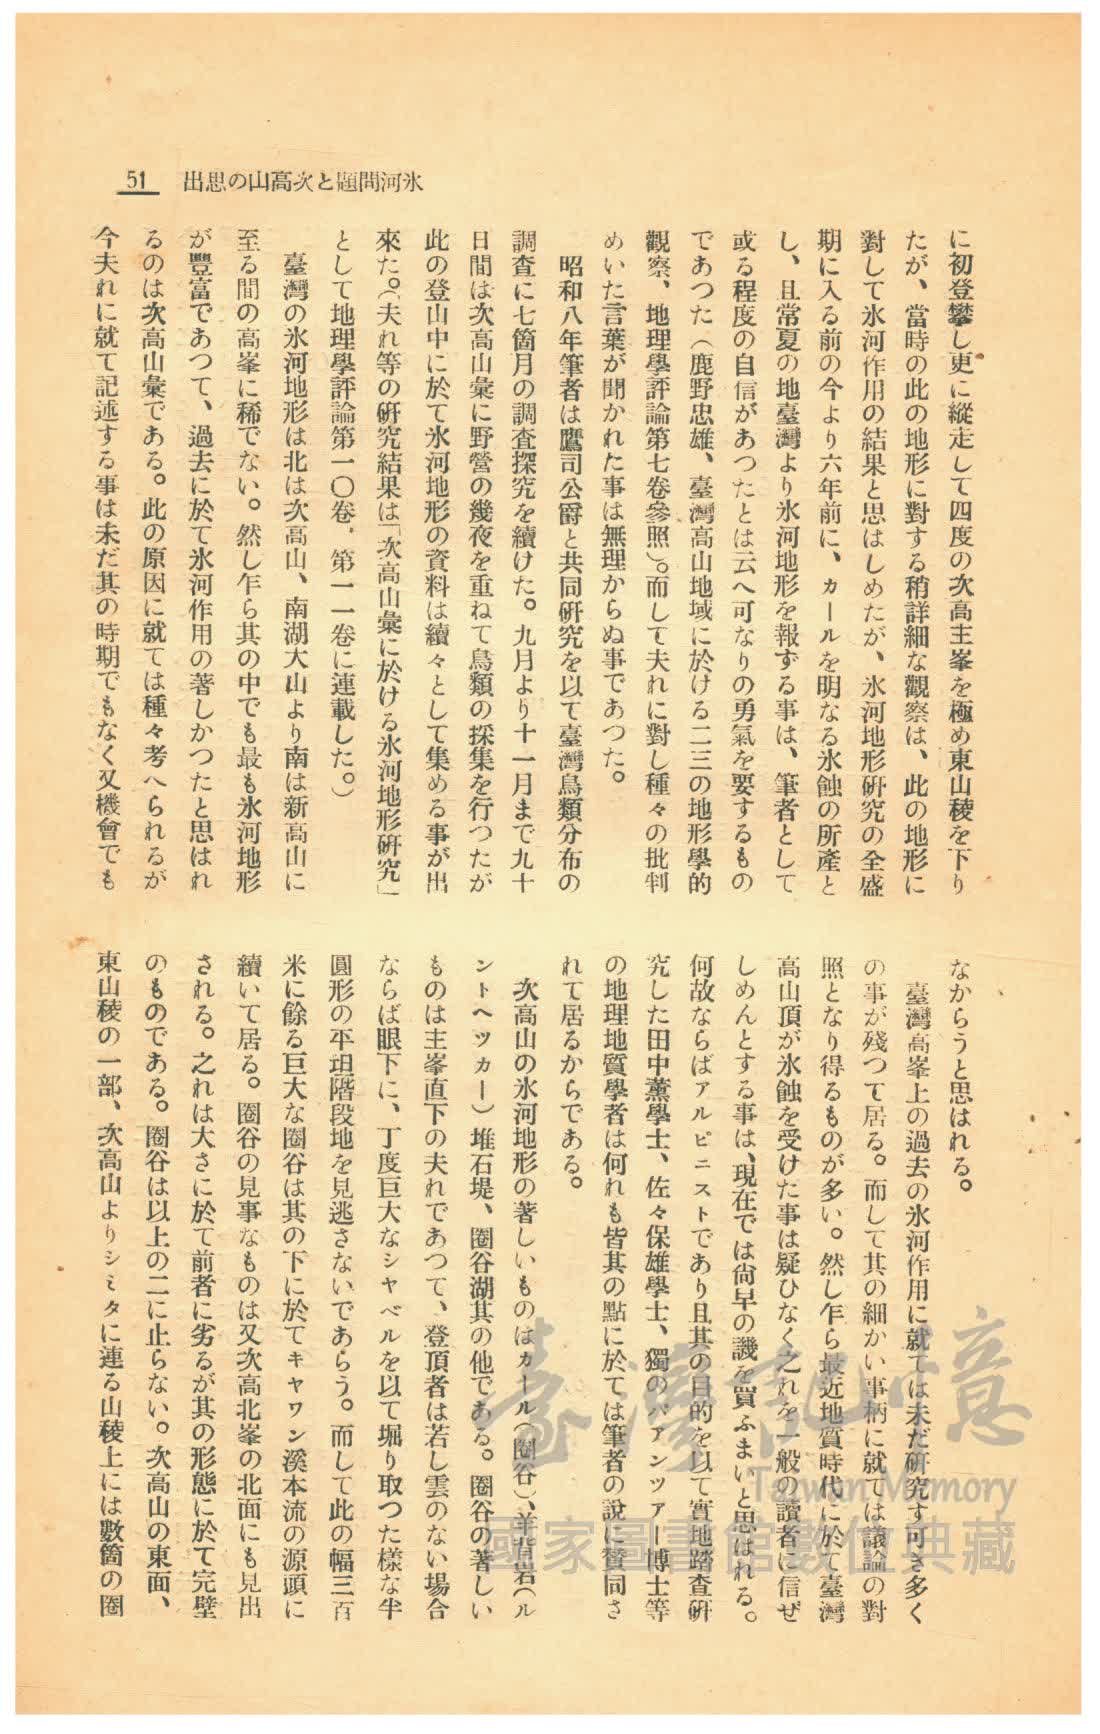 氷河問題と次高山の思出 51
に初登攀し更に縱走して四度の次高主峯を極め東山稜を下り
たが、當時の此の地形に對する稍詳細な觀察は、此の地形に
對して氷河作用の結果と思はしめたが、氷河地形研究の全盛
期に入る前の今より六年前に、カールを明なる氷蝕の所產と
し、且常夏の地臺灣より氷河地形を報ずる事は、筆者として
或る程度の自信があつたとは云へ可なりの勇氣を要するもの
であつた（鹿野忠雄、臺灣高山地域に於ける二三の地形學的
觀察、地理學評論第七卷參照）。而して夫れに對し種々の批判
めいた言葉が聞かれた事は無理からぬ事であつた。
昭和八年筆者は鷹司公爵と共同研究を以て臺灣鳥類分布の
調査に七箇月の調査探究を續けた。九月より十一月まで九十
日間は次高山彙に野營の幾夜を重ねて鳥類の採集を行つたが
此の登山中に於て氷河地形の資料は續々として集める事が出
來た。（夫れ等の研究結果は「次高山彙に於ける氷河地形研究」
として地理學評論第一〇卷．第一一卷に連載した。）
臺灣の氷河地形は北は次高山、南湖大山より南は新高山に
至る間の高峯に稀でない。然し乍ら其の中でも最も氷河地形
が豐富であつて、過去に於て氷河作用の著しかつたと思はれ
るのは次高山彙である。此の原因に就ては種々考へられるが
今夫れに就て記述する事は未だ其の時期でもなく又機會でも
なからうと思はれる。
臺灣高峯上の過去の氷河作用に就ては未だ研究す可き多く
の事が殘つて居る。而して其の細かい事柄に就ては議論の對
照となり得るものが多い。然し乍ら最近地質時代に於て臺灣
高山頂が氷蝕を受けた事は疑ひなく之れを一般の讀者に信ぜ
しめんとする事は、現在では尚早の譏を買ふまいと思はれる。
何故ならばアルピニストであり且其の目的を以て實地踏查研
究した田中薫學士、佐々保雄學士、獨のパアンツアー博士等
の地理地質學者は何れも皆其の點に於ては筆者の說に贊同さ
れて居るからである。
次高山の氷河地形の著しいものはカール（圈谷）、羊背岩（ル
ントヘツカー）堆石堤、圈谷湖其の他である。圈谷の著しい
ものは主峯直下の夫れであつて、登頂者は若し雲のない場合
ならば眼下に、丁度巨大なシヤベルを以て堀り取つた樣な半
圓形の平坦階段地を見逃さないであらう。而して此の幅三百
米に餘る巨大な圈谷は其の下に於てキヤワン溪本流の源頭に
續いて居る。圈谷の見事なものは又次高北峯の北面にも見出
される。之れは大さに於て前者に劣るが其の形態に於て完璧
のものである。圈谷は以上の二に止らない。次高山の東面、
東山稜の一部、次高山よりシミタに連る山稜上には數箇の圈
臺灣記憶
Taiwan Memory
國家圖書館數位典藏